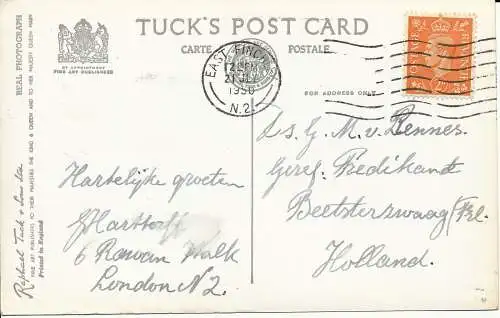 TUCK'S POST CARD
CARTE POSTALE
BY APPOINTMENT
FINE ART PUBLISHERS
FOR ADDRESS ONLY
EAST FINCHLEY
21 JLY
1950
N.2.
REAL PHOTOGRAPH
Raphael Tuck & Sons Ltd.
FINE ART PUBLISHERS TO THEIR MAJESTIES THE KING & QUEEN AND TO HER MAJESTY QUEEN MARY
Printed in England
Hartelijke groeten
J Harttorff
6 Rowan Walk
London N2.
Ds. G. M. v. Rennes.
Geref. Predikant
Beetsterzwaag
Holland.